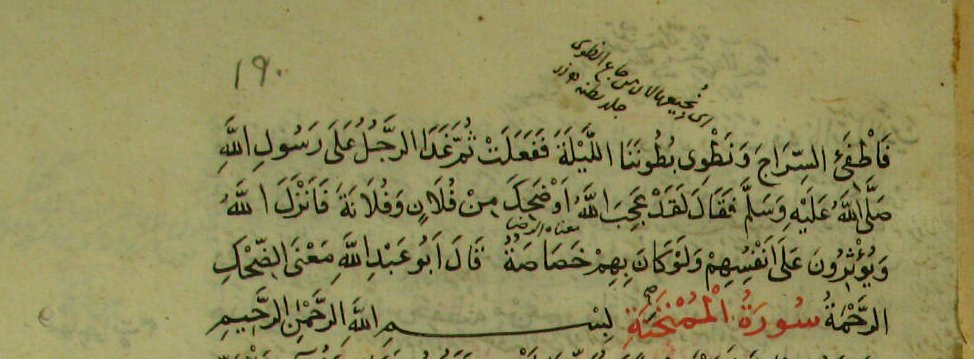 ١٩٠
اى نجيعها لان من جاع انطوى
جلد بطنه
فَأَطْفِئِ السِّرَاجَ وَنَطْوِى بُطُونَنَا اللَّيْلَةَ فَفَعَلَتْ ثُمَّ غَدَا الرَّجُلُ عَلَى رَسُولِ اللَّهِ
صَلَّى اللَّهُ عَلَيْهِ وَسَلَّمَ فَقَالَ لَقَدْ عَجِبَ اللَّهُ أَوْ ضَحِكَ مِنْ فُلَانٍ وَفُلَانَةَ فَأَنْزَلَ اللَّهُ
معناه الرضا
وَيُؤْثِرُونَ عَلَى أَنْفُسِهِمْ وَلَوْ كَانَ بِهِمْ خَصَاصَةٌ قَالَ أَبُو عَبْدِ اللَّهِ مَعْنَى الضِّحْكِ
الرَّحْمَةُ سُورَةُ الْمُمْتَحِنَةِ بِسْمِ اللَّهِ الرَّحْمَنِ الرَّحِيمِ